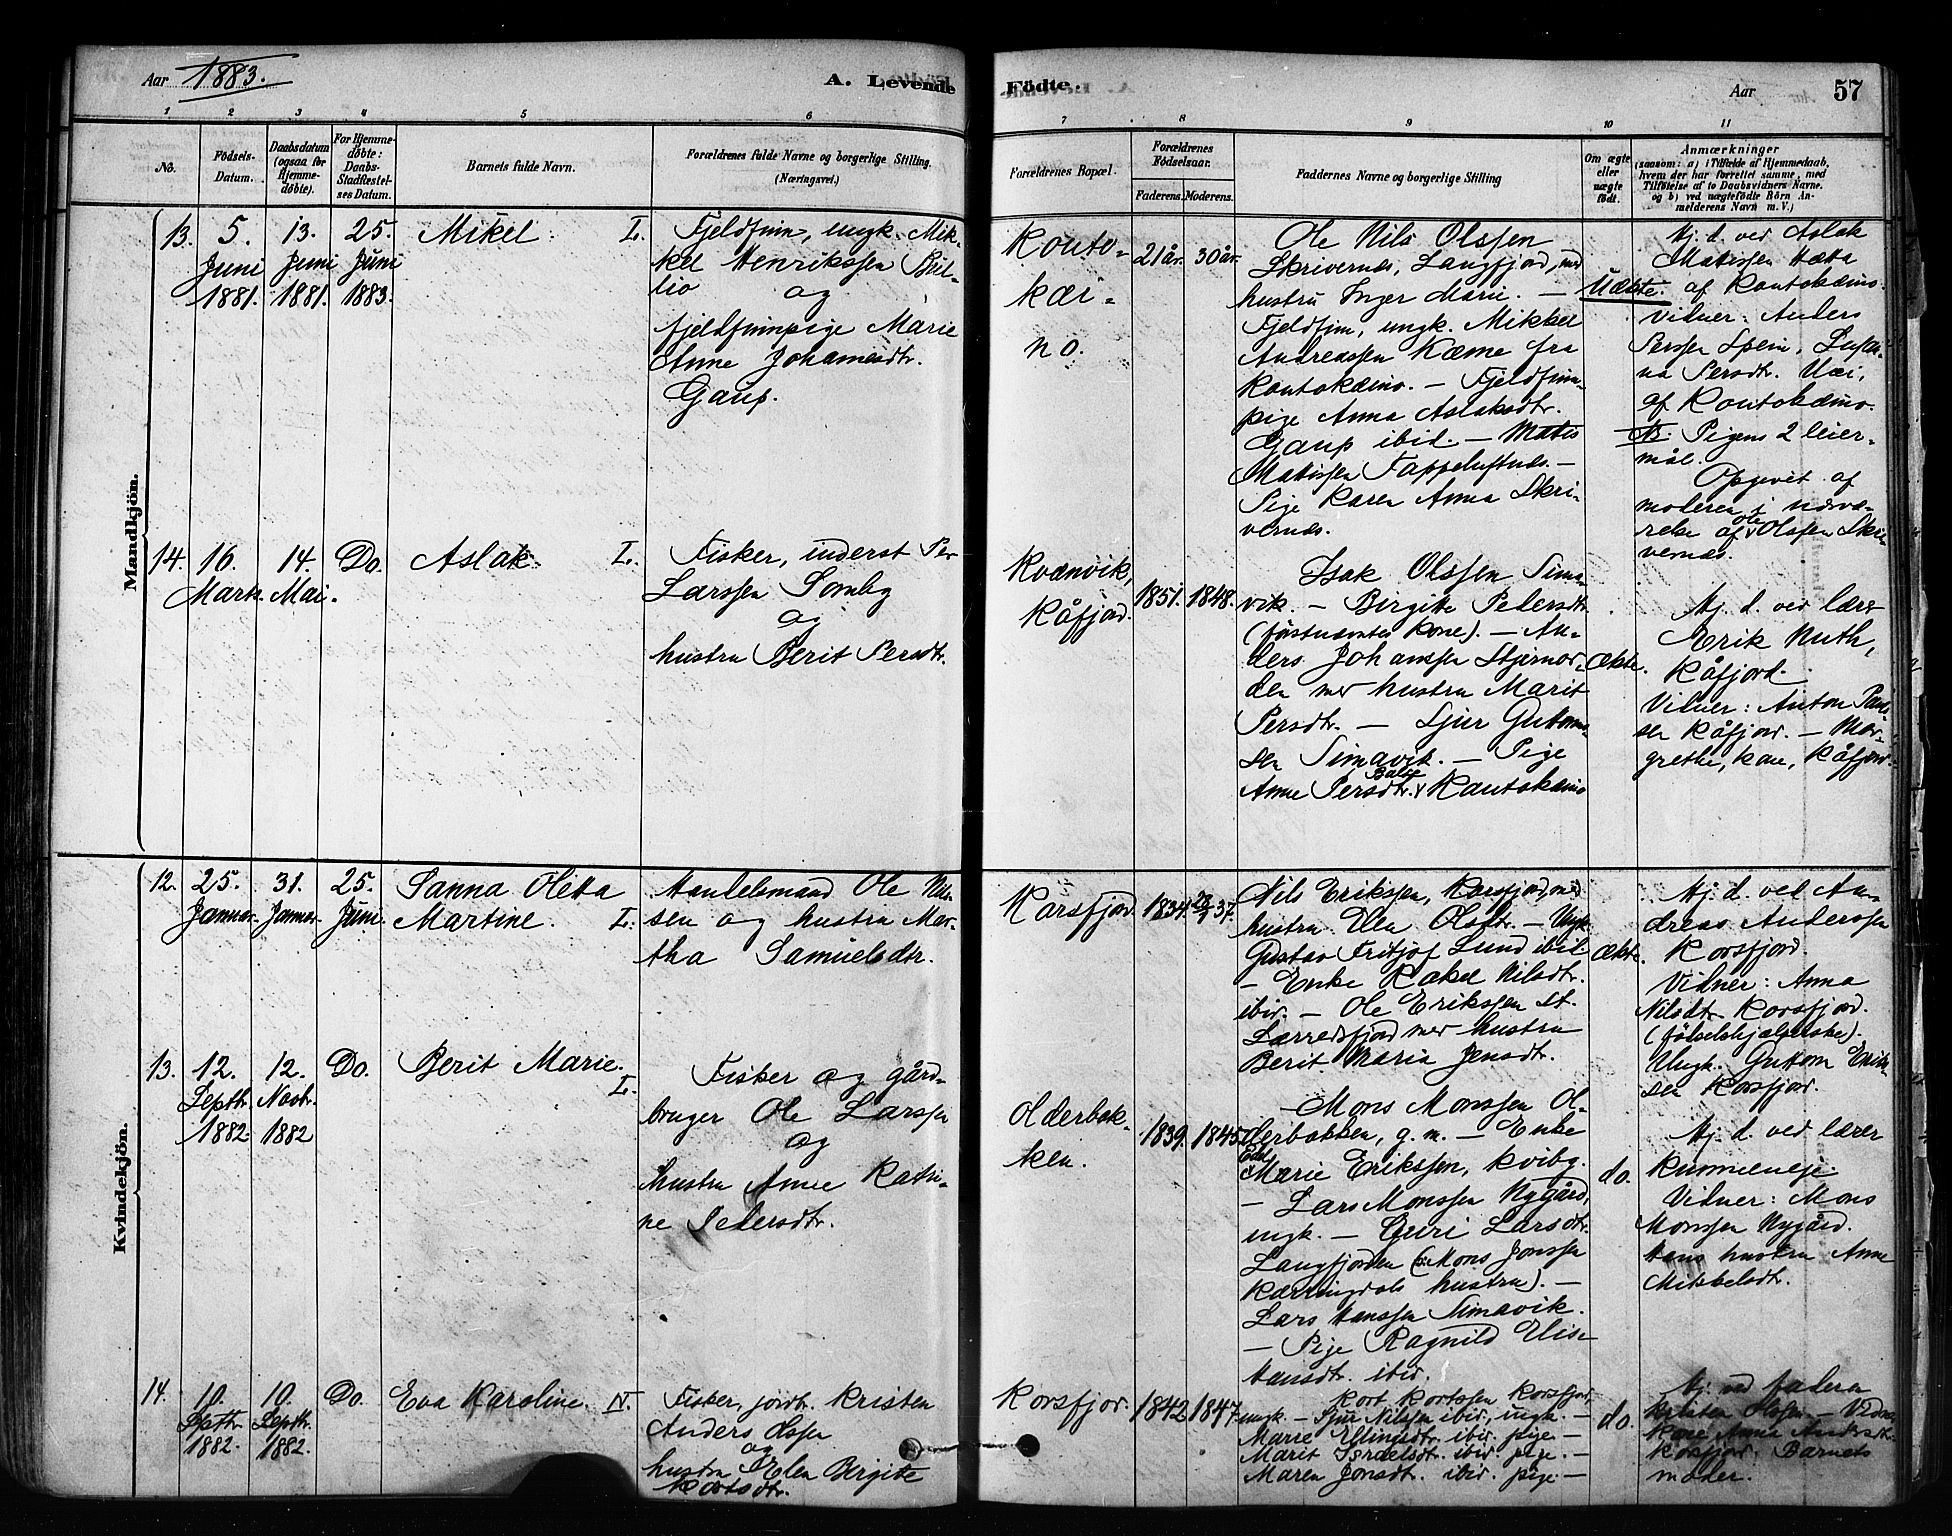 Aar 1883.
A. Levende Födte.
Aar
57
1
2
3
4
5
6
7
8
9
10
11
No.
Födsels-
Datum.
Daabsdatum
(ogsaa for
Hjemme-
døbte).
For Hjemme-
døbte:
Daabs-
Stadfæstel-
ses Datum.
Barnets fulde Navn.
Forældrenes fulde Navne og borgerlige Stilling.
(Næringsvei.)
Forældrenes Bopæl.
Forældrenes
Födselsaar.
Faderens.
Moderens.
Faddernes Navne og borgerlige Stilling
Om ægte
eller
uægte
født.
Anmærkninger
(saasom: a) i Tilfælde af Hjemmedaab,
hvem der har forrettet samme, med
Tilföielse af to Daabsvidners Navne,
og b) ved uægtefödte Börn An-
melderens Navn m. V.)
Mandkjön.
13.
5.
Juni
1881.
13.
Juni
1881.
25.
Juni
1883.
Mikel. I.
Fjeldfinn, ungk. Mik-
kel Henrikssen
og
fjeldfinnpige Marie
Anne Johannesdtr.
Gaup.
Kouto-
kæi-
no.
21 år.
30 år.
Ole Nils Olssen
Skrivernæs, Langfjord, med
hustru Inger Marie. —
Fjeldfin, ungk. Mikkel
Andreassen Kæme fra
Koutokæino. — Fjeldfinn-
pige Anna Aslaksdtr.
Gaup ibid. — Matis
Matissen Tappeluftnæs. —
Pige Karen Anna Skri-
vernæs.
Uækte.
Hj. d. ved Aslak
Matissen
af Koutokæino.
Vidner: Anders
Perssen Spein,
Persdtr.
af Koutokæino.
NB. Pigens 2 leier-
mål.
Opgivet af
moderen i nærvæ-
relse af Ole Olssen Skri-
vernæs.
14.
16.
Marts.
14.
Mai.
Do.
Aslak. I.
Fisker, inderst Per
Larssen Somby
og
hustru Berit Persdtr.
Kvænvik,
Kåfjord.
1851.
1848.
Isak Olssen Sima-
vik. — Birgitte Pedersdtr.
(førstnævntes kone). — An-
ders Johanssen Stjernor-
den med hustru Marit
Persdtr. — Sjur Guttorms-
sen Simavik. — Pige
Anne Persdtr. Balse Kautokæino
ækte.
Hj. d. ved lærer
Erik Muth,
Kåfjord.
Vidner: Anton Paul-
sen Kåfjord. — Mar-
grethe, kone, Kåfjord.
Kvindekjön.
12.
25.
Januar.
31.
Januar.
25.
Juni
Sanna Oletta
Martine. I.
Handelsmand Ole Nils-
sen og hustru Mar-
tha Samuelsdtr.
Korsfjord
1834.
28/9 37.
Nils Erikssen, Korsfjord, med
hustru Elen Olsdtr. — Ungk.
Gustav Fritjof Lund ibid.
— Enke Rakel Nilsdtr.
ibid. — Ole Erikssen St.
Lerresfjord med hustru
Berit Maria Jensdtr.
ækte.
Hj. d. ved An-
dreas Anderssen
Korsfjord.
Vidner: Anna
Nilsdtr. Korsfjord.
(fødselshjælperske).
Ungk. Guttorm Eriks-
sen Korsfjord.
13.
12.
Septbr.
1882.
12.
Novbr.
1882
Do.
Berit Marie. I.
Fisker og gård-
bruger Ole Larssen
og
hustru Anne Katri-
ne Pedersdtr.
Olderbak-
ken.
1839.
1845.
— Mons Monssen Ol-
derbakken, g.m. — Enke
Marie Erikssen, Kvibg.
— Lars Monssen Nygård,
ungk. — Guri Larsdtr.
Langfjorden (Mons Jonssen
Kærringdals hustru). —
Lars Hanssen Simavik.
— Pige Ragnild Elise
Hansdtr. ibid.
do.
Hj. d. ved lærer
Kummeneje.
Vidner: Mons
Monssen Nygård.
Hans hustru Anne
Mikkelsdtr.
14.
10.
Septbr.
1882.
10.
Septbr.
1882.
Do.
Eva Karoline. IV.
Fisker, jordbr. Kristen
Anders Olssen
og
hustru Elen Birgitte
Kortsdtr.
Korsfjor.
1842
1847.
Kort Kortssen Korsfjord,
ungk. — Sjur Nilssen ibid, ungk. —
Marie Ellingsdtr. ibid. pige —
Marit Israelsdtr. ibid. pige —
Maren Jonsdtr. ibid. pige —
do.
Hj. ved faderen
Kristen Olssen. — Vidner,
Kone Anna Andersdtr.
Korsfjord. Barnets
moder.